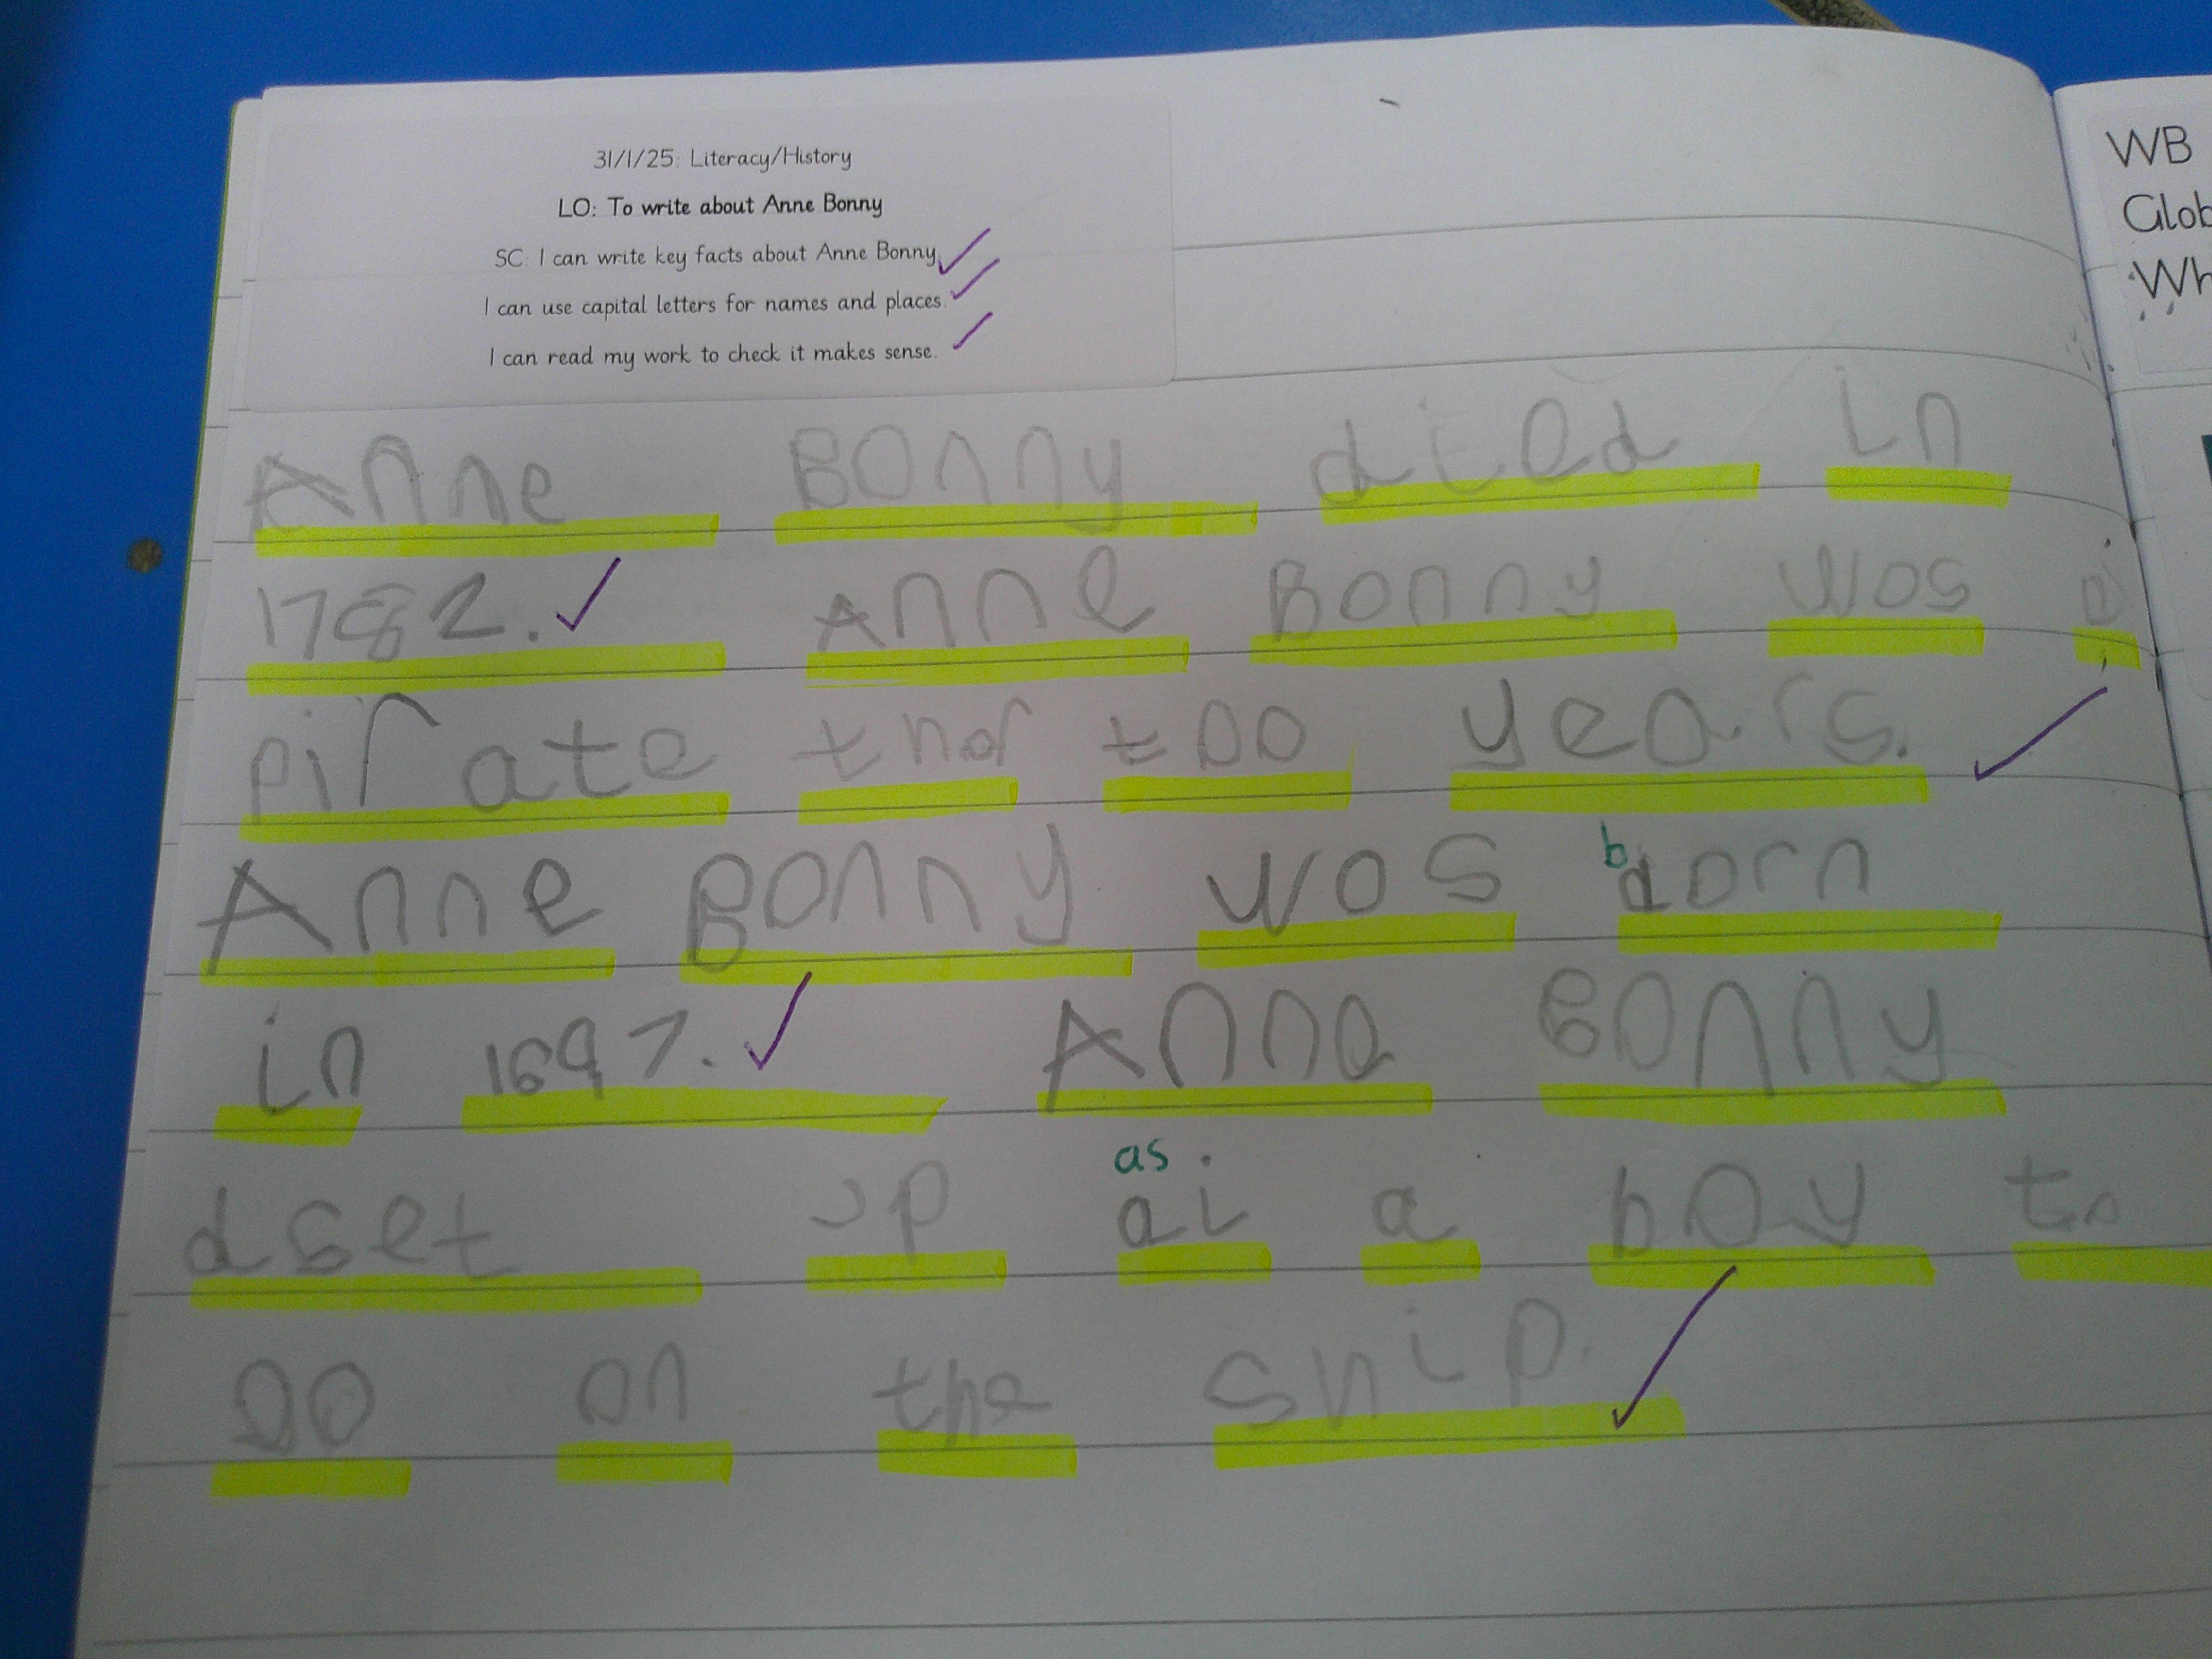 31/1/25: Literacy/History
LO: To write about Anne Bonny
SC: I can write key facts about Anne Bonny.
I can use capital letters for names and places.
I can read my work to check it makes sense.
WB
Glob
Wh
Anne Bonny died in
1782. Anne Bonny wos a
pirate thor too years.
b
Anne Bonny wos dorn
in 1697. Anne Bonny
as
dset up ai a boy to
go on the ship.